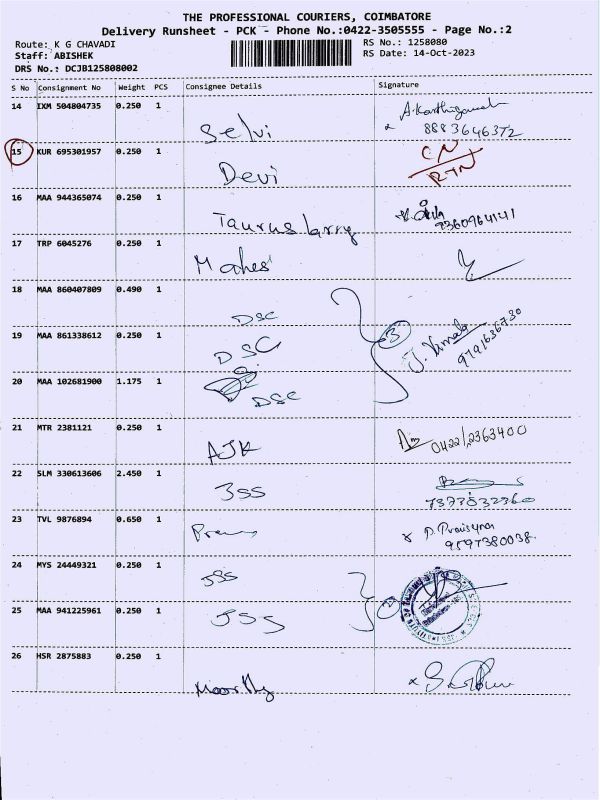 THE PROFESSIONAL COURIERS, COIMBATORE
Delivery Runsheet - PCK - Phone No.:0422-3505555 - Page No.:2
Route: K G CHAVADI
RS No.: 1258080
Staff: ABISHEK
RS Date: 14-Oct-2023
DRS No.: DCJB125808002
S No Consignment No Weight PCS Consignee Details Signature
14 IXM 504804735 0.250 1 Selvi
8883646372
15 KUR 695301957 0.250 1 Devi
RTN
16 MAA 944365074 0.250 1 Tauruslarry
7360964141
17 TRP 6045276 0.250 1 Mahes
18 MAA 860407809 0.490 1 DSC
19 MAA 861338612 0.250 1 DSC 3 J. Vimala
9791636730
20 MAA 102681900 1.175 1 DSC
21 MTR 2381121 0.250 1 AJK 0422/2363400
22 SLM 330613606 2.450 1 JSS
7373032360
23 TVL 9876894 0.650 1 Prem
9597380038
24 MYS 24449321 0.250 1 JSS
25 MAA 941225961 0.250 1 JSS 2
26 HSR 2875883 0.250 1 Moorthy